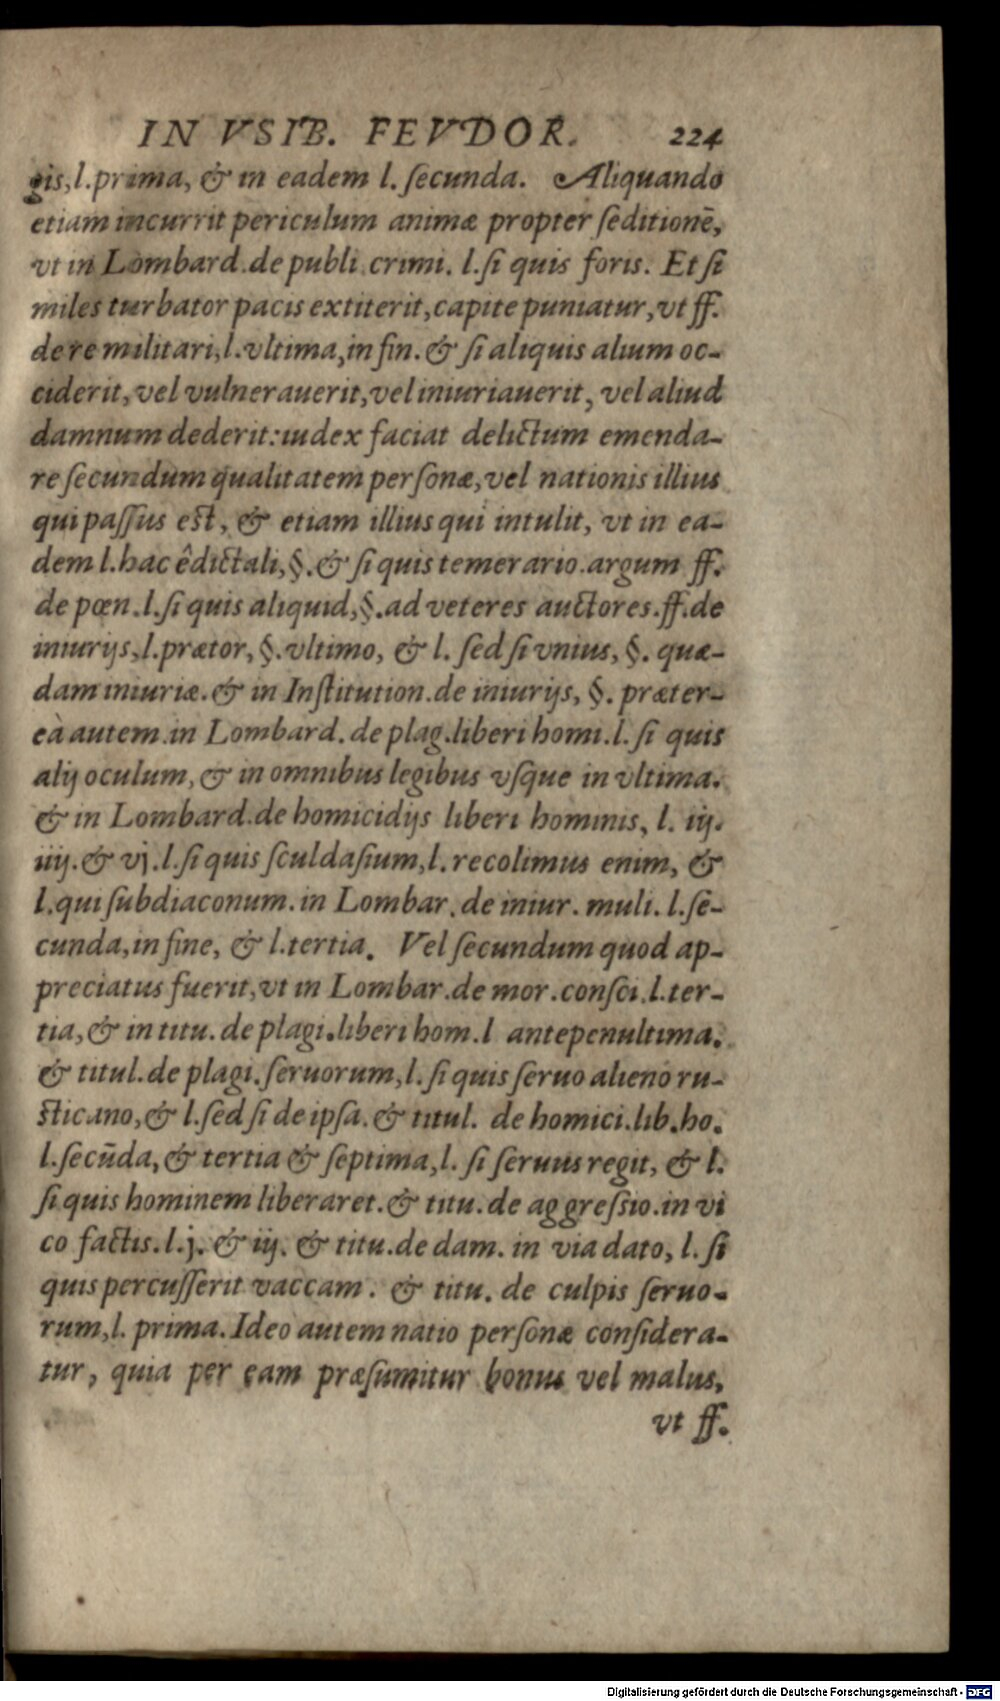 IN VSIB. FEVDOR. 224
gis, l. prima, & in eadem l. ſecunda. Aliquando
etiam incurrit periculum animæ propter ſeditionē,
vt in Lombard. de publi. crimi. l. ſi quis foris. Et ſi
miles turbator pacis extiterit, capite puniatur, vt ff.
de re militari, l. vltima, in fin. & ſi aliquis alium oc-
ciderit, vel vulnerauerit, vel iniuriauerit, vel aliud
damnum dederit: iudex faciat delictum emenda-
re ſecundum qualitatem perſonæ, vel nationis illius
qui paſſus est, & etiam illius qui intulit, vt in ea-
dem l. hac êdictali, §. & ſi quis temerario. argum ff.
de pœn. l. ſi quis aliquid, §. ad veteres auctores. ff. de
iniurijs, l. prætor, §. vltimo, & l. ſed ſi vnius, §. quæ-
dam iniuriæ. & in Inſtitution. de iniurijs, §. præter-
eà autem. in Lombard. de plag. liberi homi. l. ſi quis
alij oculum, & in omnibus legibus vſque in vltima.
& in Lombard. de homicidijs liberi hominis, l. iij.
iiij. & vj. l. ſi quis ſculdaſium, l. recolimus enim, &
l. qui ſubdiaconum. in Lombar. de iniur. muli. l. ſe-
cunda, in fine, & l. tertia. Vel ſecundum quod ap-
preciatus fuerit, vt in Lombar. de mor. conſci. l. ter-
tia, & in titu. de plagi. liberi hom. l antepenultima.
& titul. de plagi. ſeruorum, l. ſi quis ſeruo alieno ru-
sticano, & l. ſed ſi de ipſa. & titul. de homici. lib. ho.
l. ſecūda, & tertia & ſeptima, l. ſi ſeruus regit, & l.
ſi quis hominem liberaret. & titu. de aggreſsio. in vi
co factis. l. j. & iij. & titu. de dam. in via dato, l. ſi
quis percuſſerit vaccam. & titu. de culpis ſeruo-
rum, l. prima. Ideo autem natio perſonæ conſidera-
tur, quia per eam præſumitur bonus vel malus,
vt ff.
Digitalisierung gefördert durch die Deutsche Forschungsgemeinschaft - DFG